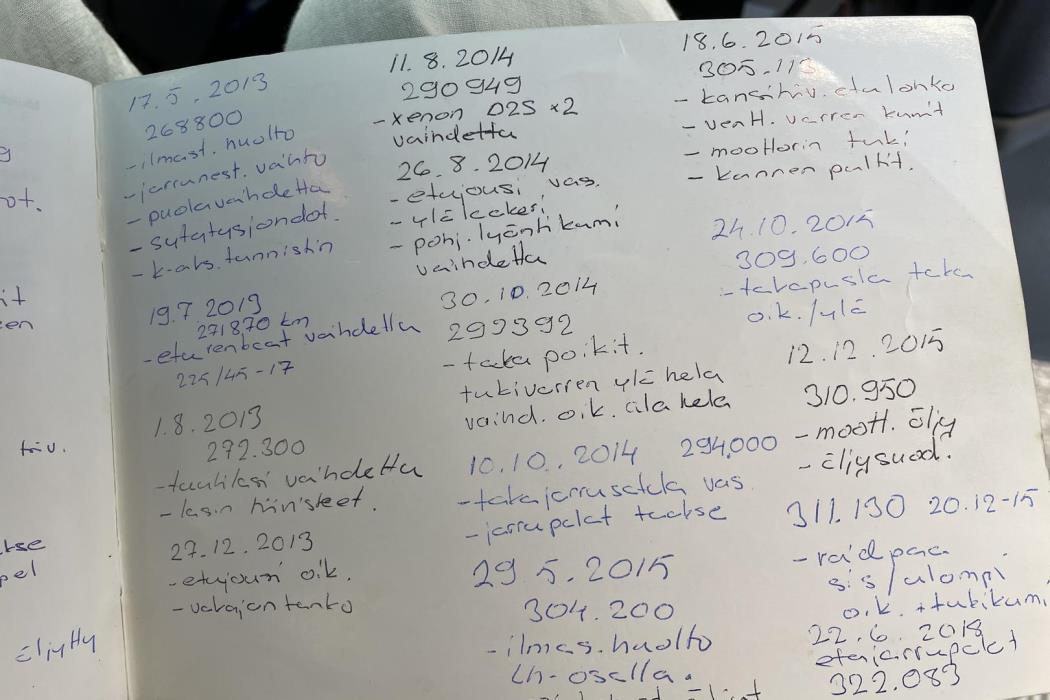 17.5.2013
268800
-ilmast. huolto
-jarrunest. vaihto
-puola vaihdettu
-sytytysjohdot.
-k-aks. tunnistin
19.7.2013
271870 km
-eturenkaat vaihdettu
225/45-17
1.8.2013
272.300
-tuulilasi vaihdettu
-lasin
27.12.2013
-etujousi oik.
-vakajantanko
11.8.2014
290949
-xenon D2S x2
vaihdettu
26.8.2014
-etujousi vas.
-ylälaakeri
-pohj.lyöntikumi
vaihdettu
30.10.2014
292392
-taka poikit.
tukivarren ylä hela
vaihd. oik. ala hela
10.10.2014 294,000
-takajarrusatula vas
-jarrupalat taakse
29.5.2015
304.200
-ilmas. huolto
Lh-osalla.
18.6.2015
305.113
- kansitiiv. etulohko
- ventt. varren kumit
- moottorin tuki
- kannen pultit.
24.10.2015
309.600
-takapusla taka
oik./ylä
12.12.2015
310.950
-moott. öljy
-öljysuod.
311.130 20.12-15
-raidpaa
sis/ulompi
oik. +tukikumi
22.6.2018
etujarrupalat
322.083
ot.
it
en
tiiv.
kse
pel
öljytty